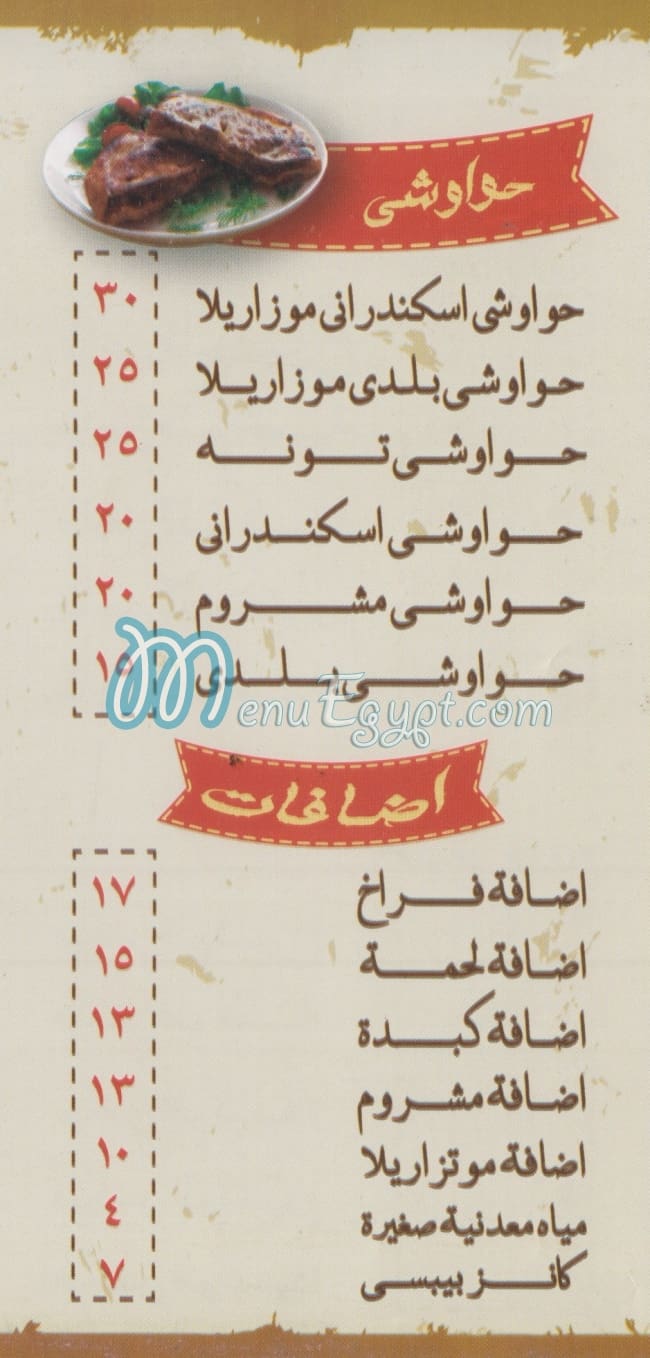 حواوشى
حواوشى اسكندرانى موزاريلا ٣٠
حواوشى بلدى موزاريلا ٢٥
حواوشى تونه ٢٥
حواوشى اسكندرانى ٢٠
حواوشى مشروم ٢٠
حواوشى بلدى ١٥
MenuEgypt.com
اضافات
اضافة فراخ ١٧
اضافة لحمة ١٥
اضافة كبدة ١٣
اضافة مشروم ١٣
اضافة موتزاريلا ١٠
مياه معدنية صغيرة ٤
كانز بيبسى ٧